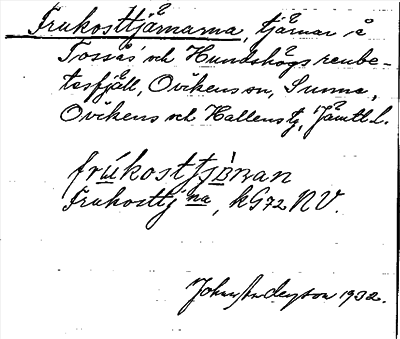 Frukosttjärnarna, tjärnar å
Tossås' och Hundshögs renbe-
tesfjäll, Ovikens sn, Sunne,
Ovikens och Hallens tg, Jämtl. l.
frúkosttjànan
Frukosttj na, kG72 NV.
John Anderson 1932.